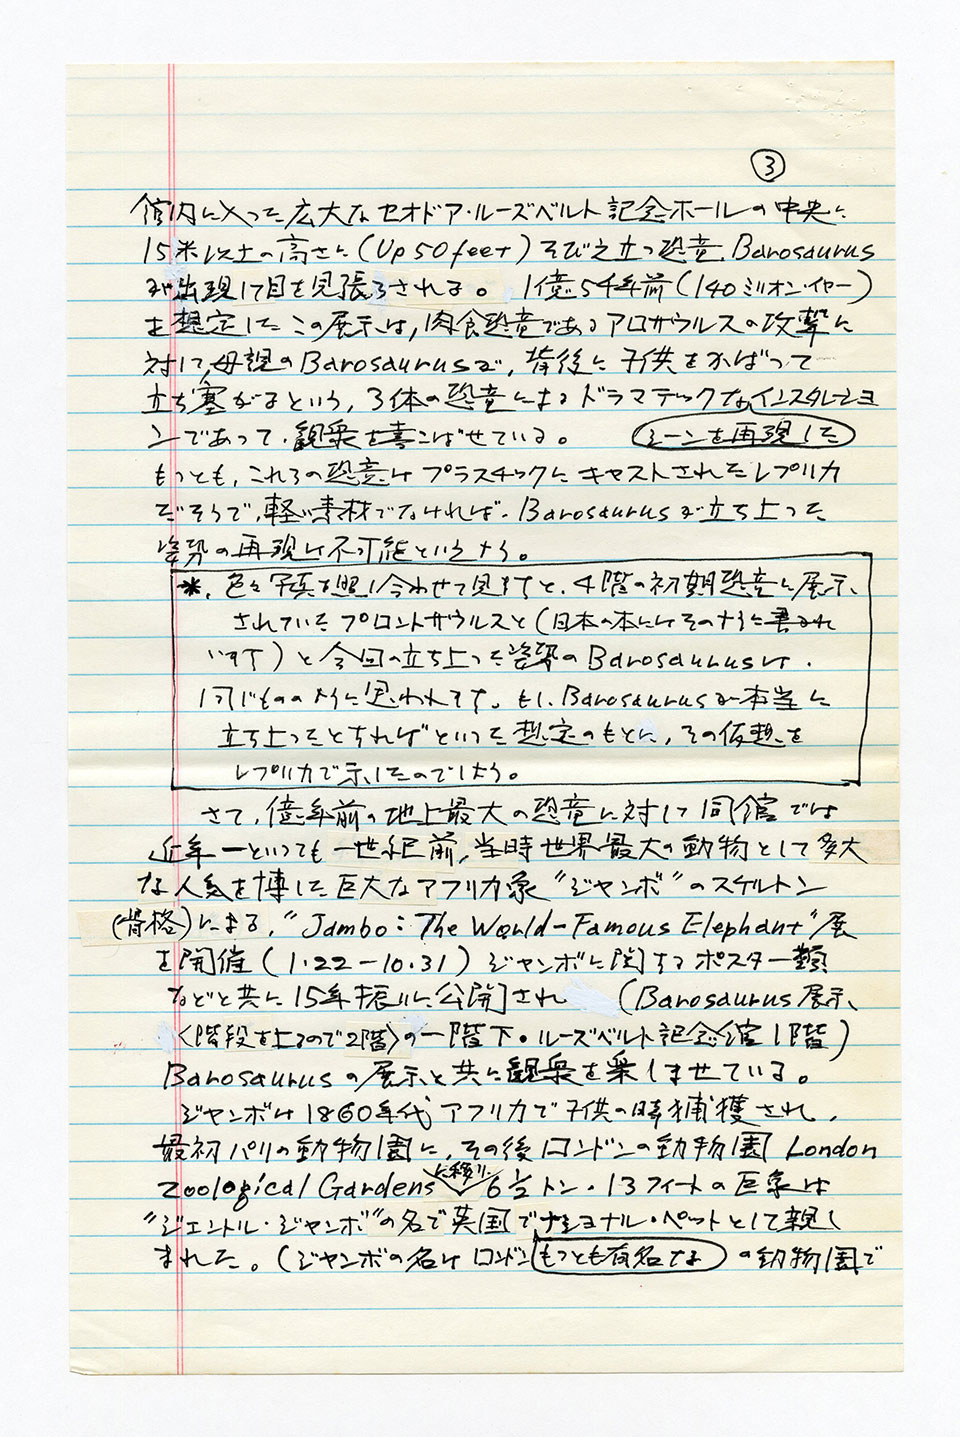 ③
館内に入った広大なセオドア・ルーズベルト記念ホールの中央に
15米以上の高さに(Up 50 feet)そびえ立つ恐竜、Barosaurus
が出現して目を見張らされる。 1億5千年前(140ミリオン・イヤー)
を想定したこの展示は、肉食恐竜であるアロザウルスの攻撃に
対して、母親のBarosaurusが、背後に子供をかばって
立ち塞がるという、3体の恐竜によるドラマテックなインスタレーショ
ンであって、観衆を喜こばせている。 シーンを再現した
もっとも、これらの恐竜はプラスチックにキャストされたレプリカ
だそうで、軽い素材でなければ、Barosaurusが立ち上った
姿勢の再現は不可能というよう。
*、色々写真を照し合わせて見ますと、4階の初期恐竜に展示
されていたブロントザウルスと(日本の本にはそのように書かれ
います)と今回の立ち上った姿勢のBarosaurusは、
同じもののように思われます。もし、Barosaurusが本当に
立ち上ったとすればといった想定のもとに、その仮想を
レプリカで示したのでしょう。
さて、億年前の地上最大の恐竜に対して同館では
近年—といっても一世紀前、当時世界最大の動物として多大
な人気を博した巨大なアフリカ象“ジャンボ”のスケルトン
(骨格)による、“Jambo: The World-Famous Elephant”展
を開催(1・22-10・31)ジャンボに関するポスター類
などと共に15年振りに公開され (Barosaurus展示、
〈階段を上るので2階〉の一階下・ルーズベルト記念館1階)
Barosaurusの展示と共に観衆を楽しませている。
ジャンボは1860年代アフリカで子供の時捕獲され、
最初パリの動物園に、その後ロンドンの動物園 London
Zoological Gardens に移り、6½トン・13フィートの巨象は
“ジェントル・ジャンボ”の名で英国でナショナル・ペットとして親し
まれた。(ジャンボの名はロンドンもっとも有名なの動物園で